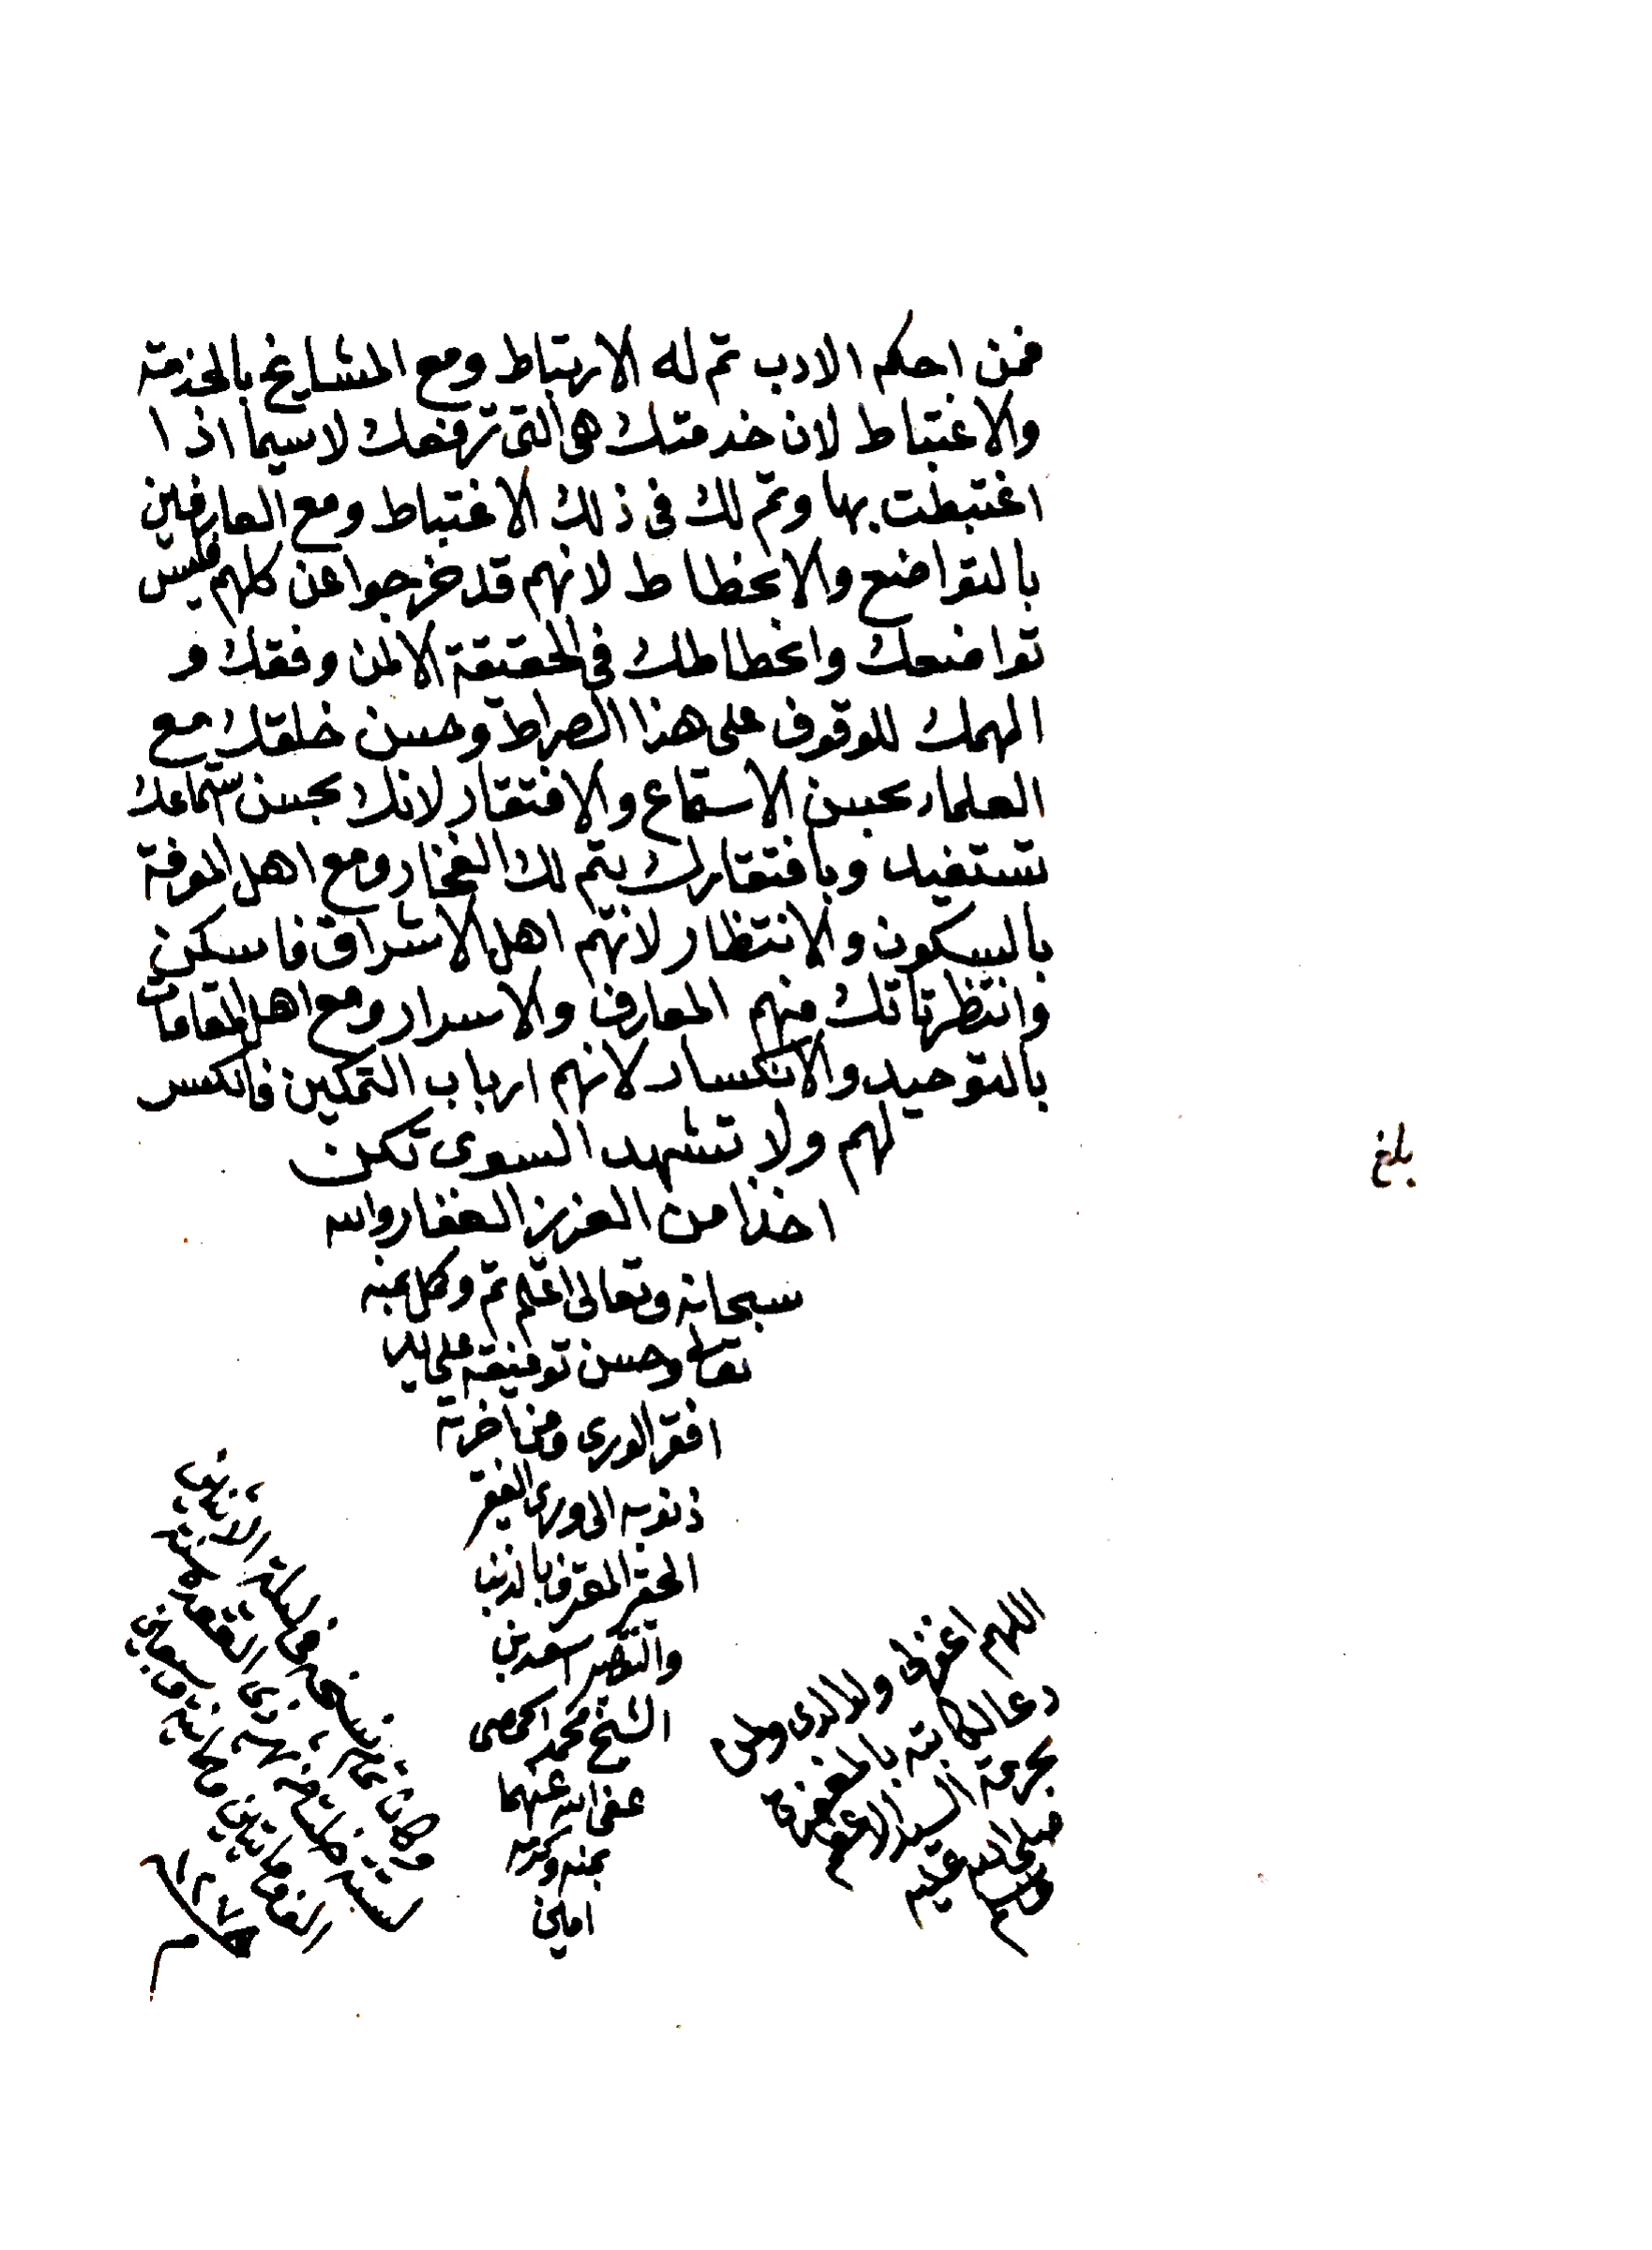 فمن احكم الادب تم له الارتباط ومع المشايخ بالخدمة
والاغتباط لان خدمتك هى التى ترفعك لاسيما اذا
اغتبطت بها وتم لك فى ذلك الاغتباط ومع العارفين
بالتواضع والانحطاط لانهم قد خرجوا عن كلهم فليس
تواضعك وانحطاطك فى الحقيقة الا لمن وفقك و
الهمك للوقوف على هذا الصراط وحسن خلقك مع
العلماء بحسن الاستماع والافتقار لانك بحسن استماعك
تستفيد وبافتقارك يتم لك الفخار ومع اهل المعرفة
بالسكون والانتظار لانهم اهل الاشراق فاسكن
وانتظر تاتك منهم المعارف والاسرار ومع اهل المقامات
بالتوحيد والانكسار لانهم ارباب التمكين فانكسر
لهم ولا تشهد السوى تكن
اخذا من العزيز الغفار والله
سبحانه وتعالى اعلم تم وكمل بمنه
تعالى وحسن توفيقه على يد
افقر الورى ومن اخرته
ذنوبه الى ورى الفقير
الحقير المعترف بالذنب
والتقصير اسعد بن
الشيخ محمد الحمصى
عفى الله عنهما
بمنه وكرمه
امين
بلغ
اللهم اغفر لى ولوالدى ولمن
دعا لكاتبه بالمغفرة
بحرمة السيد الاعظم
صلى الله عليه
وسلم
وكان الفراغ من